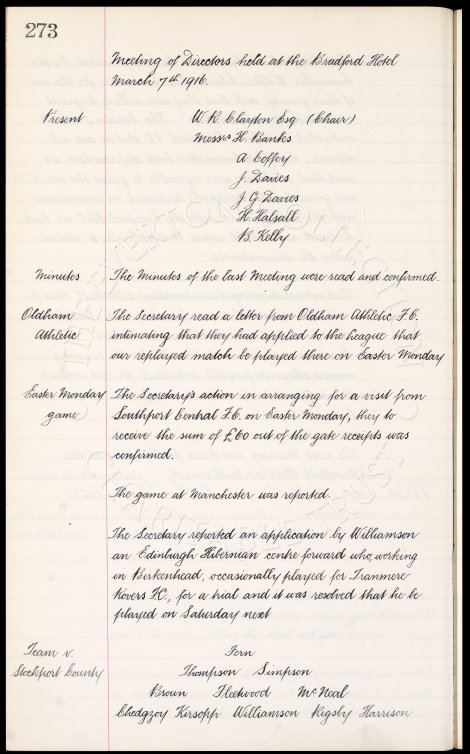 273
Meeting of Directors held at the Bradford Hotel
March 7th 1916.
Present W. R. Clayton Esq (Chair)
Messrs H. Banks
A Coffey
J. Davies
J. G. Davies
H. Halsall
B. Kelly
Minutes The Minutes of the last Meeting were read and confirmed.
Oldham The Secretary read a letter from Oldham Athletic F.C.
Athletic intimating that they had applied to the League that
our replayed match be played there on Easter Monday
Easter Monday The Secretary's action in arranging for a visit from
game Southport Central F.C. on Easter Monday, they to
receive the sum of £60 out of the gate receipts was
confirmed.
The game at Manchester was reported.
The Secretary reported an application by Williamson
an Edinburgh Hibernian centre forward who, working
in Birkenhead, occasionally played for Tranmere
Rovers F.C., for a trial and it was resolved that he be
played on Saturday next
Team v. Fern
Stockport County Thompson Simpson
Brown Fleetwood McNeal
Chedgzoy Kirsopp Williamson Rigsby Harrison